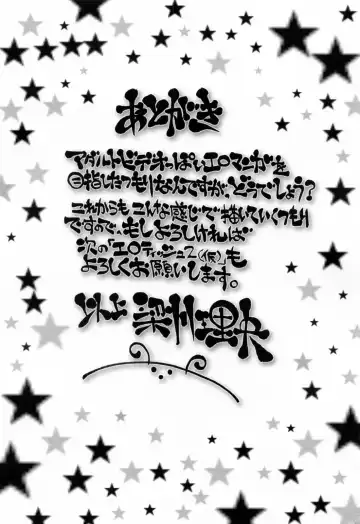 あとがき
アダルトビデオっぽいエロマンガを
目指したつもりなんですが、どうでしょう?
これからもこんな感じで描いていくつもり
ですので、もしよろしければ
次の「エロティッシュ2(仮)」も
よろしくお願いします。
以上 深州理央